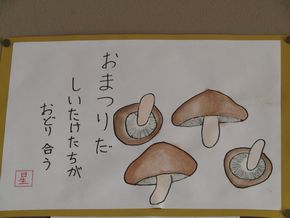 おまつりだ
しいたけたちが
おどり合う
星